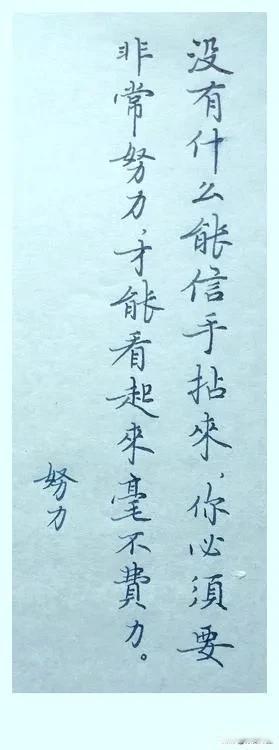 没有什么能信手拈來，你必須要
非常努力，才能看起來毫不費力。
努力